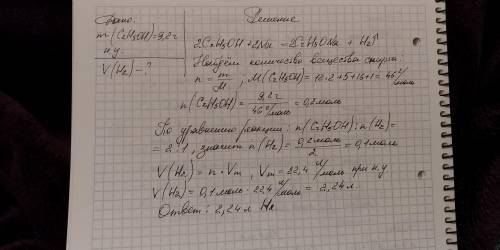 Дано:
m(C₂H₅OH)=9,2г
н.у.
V(H₂)-?
Решение
2C₂H₅OH+2Na→2C₂H₅ONa + H₂↑
Найдём количество вещества спирта:
n = m/M, M(C₂H₅OH)=12·2+5+16+1=46г/моль
n(C₂H₅OH)=9,2г/46г/моль=0,2моль
По уравнению реакции: n(C₂H₅OH):n(H₂)=
= 2:1, значит n(H₂)=0,2моль/2=0,1моль
V(H₂) = n·Vm; Vm=22,4 л/моль при н.у.
V(H₂)=0,1моль·22,4 л/моль = 2,24л.
Ответ: 2,24л H₂